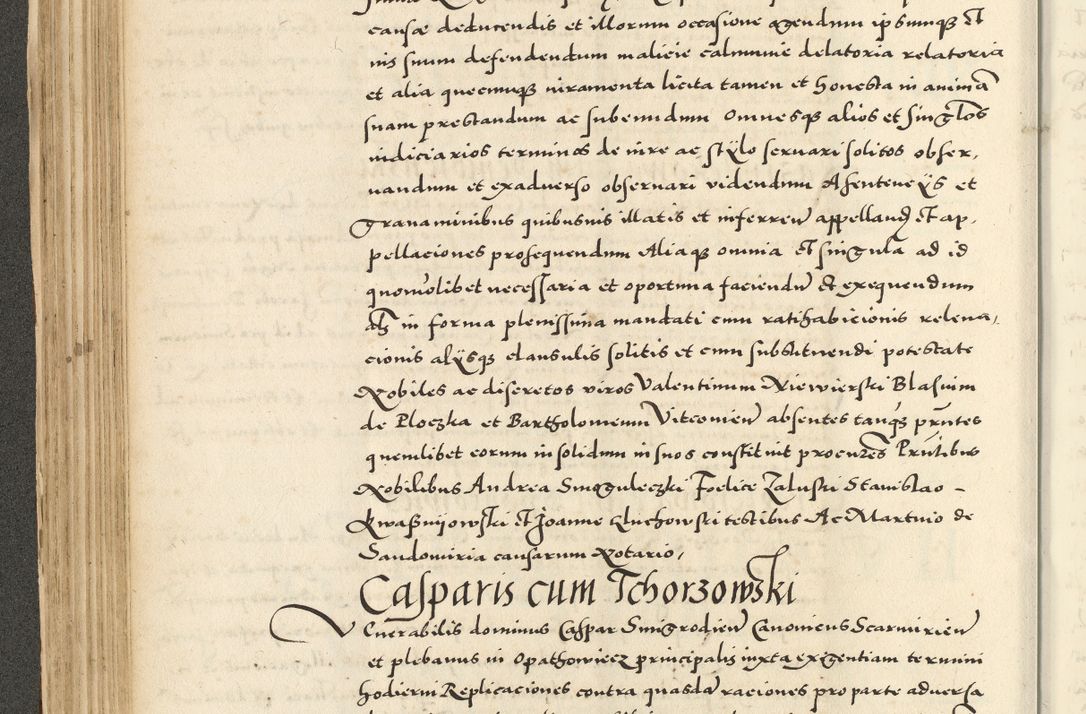 causæ deducendis et illorum occasione agendum ipsumq et
nis suum defendendum malicie calumnie delatoria relatoria
et alia quecumq iuramenta licita tamen et honesta in animā
suam prestandum ac subeundum Omnesq alios et singlos
iudiciarios terminos de iure ac stÿlo servari solitos obser,
uandum et exadverso observari videndum A sentencÿs et
Grauaminibus quibusuis illatis et inferren appelland et ap,
pellaciones prosequendum Aliaq omnia et singula ad id
quomolibet necessaria et oportuna faciendu et exequendum
in forma plenissima mandati cum ratihabicionis releua,
cionis alÿsq clausulis solitis et cum substituendi potestate
Nobiles ac discretos viros Valentinum Niewierski Blasium
de Ploczka et Bartholomeum Vitconien absentes tanq pntes
quemlibet eorum in solidum in suos constituit procures Pntibus
Nobilibus Andrea Smoguleczki Foelice Zaluski Stanislao -
Kwaßnijowski et Joanne Gluchowski testibus Ac Martino de
Sandomiria causarum Notario,
Casparis cum Tchorzowski
Venerabilis dominus Caspar Smigrodien Canonicus Scarmirien
et plebanus in Opathowiecz principalis iuxta exigentiam termini
hodierni Replicaciones contra quasda raciones pro parte adversa